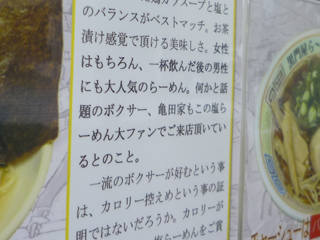 鶏ガラスープと塩と
のバランスがベストマッチ。お茶
漬け感覚で頂ける美味しさ。女性
はもちろん、一杯飲んだ後の男性
にも大人気のらーめん。何かと話
題のボクサー、亀田家もこの塩ら
ーめん大ファンでご来店頂いてい
るとのこと。
一流のボクサーが好むという事
は、カロリー控えめという事の証
明ではないだろうか。カロリーが
塩らーめんをご賞
チャーシューは